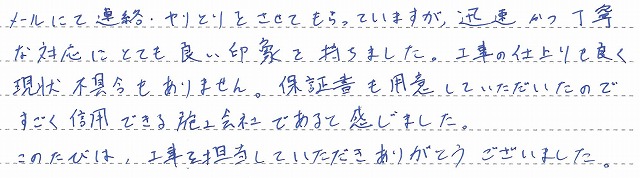 メールにて連絡・やりとりをさせてもらっていますが、迅速かつ丁寧
な対応にとても良い印象を持ちました。工事の仕上りも良く
現状不具合もありません。保証書も用意していただいたので
すごく信用できる施工会社であると感じました。
このたびは、工事を担当していただきありがとうございました。